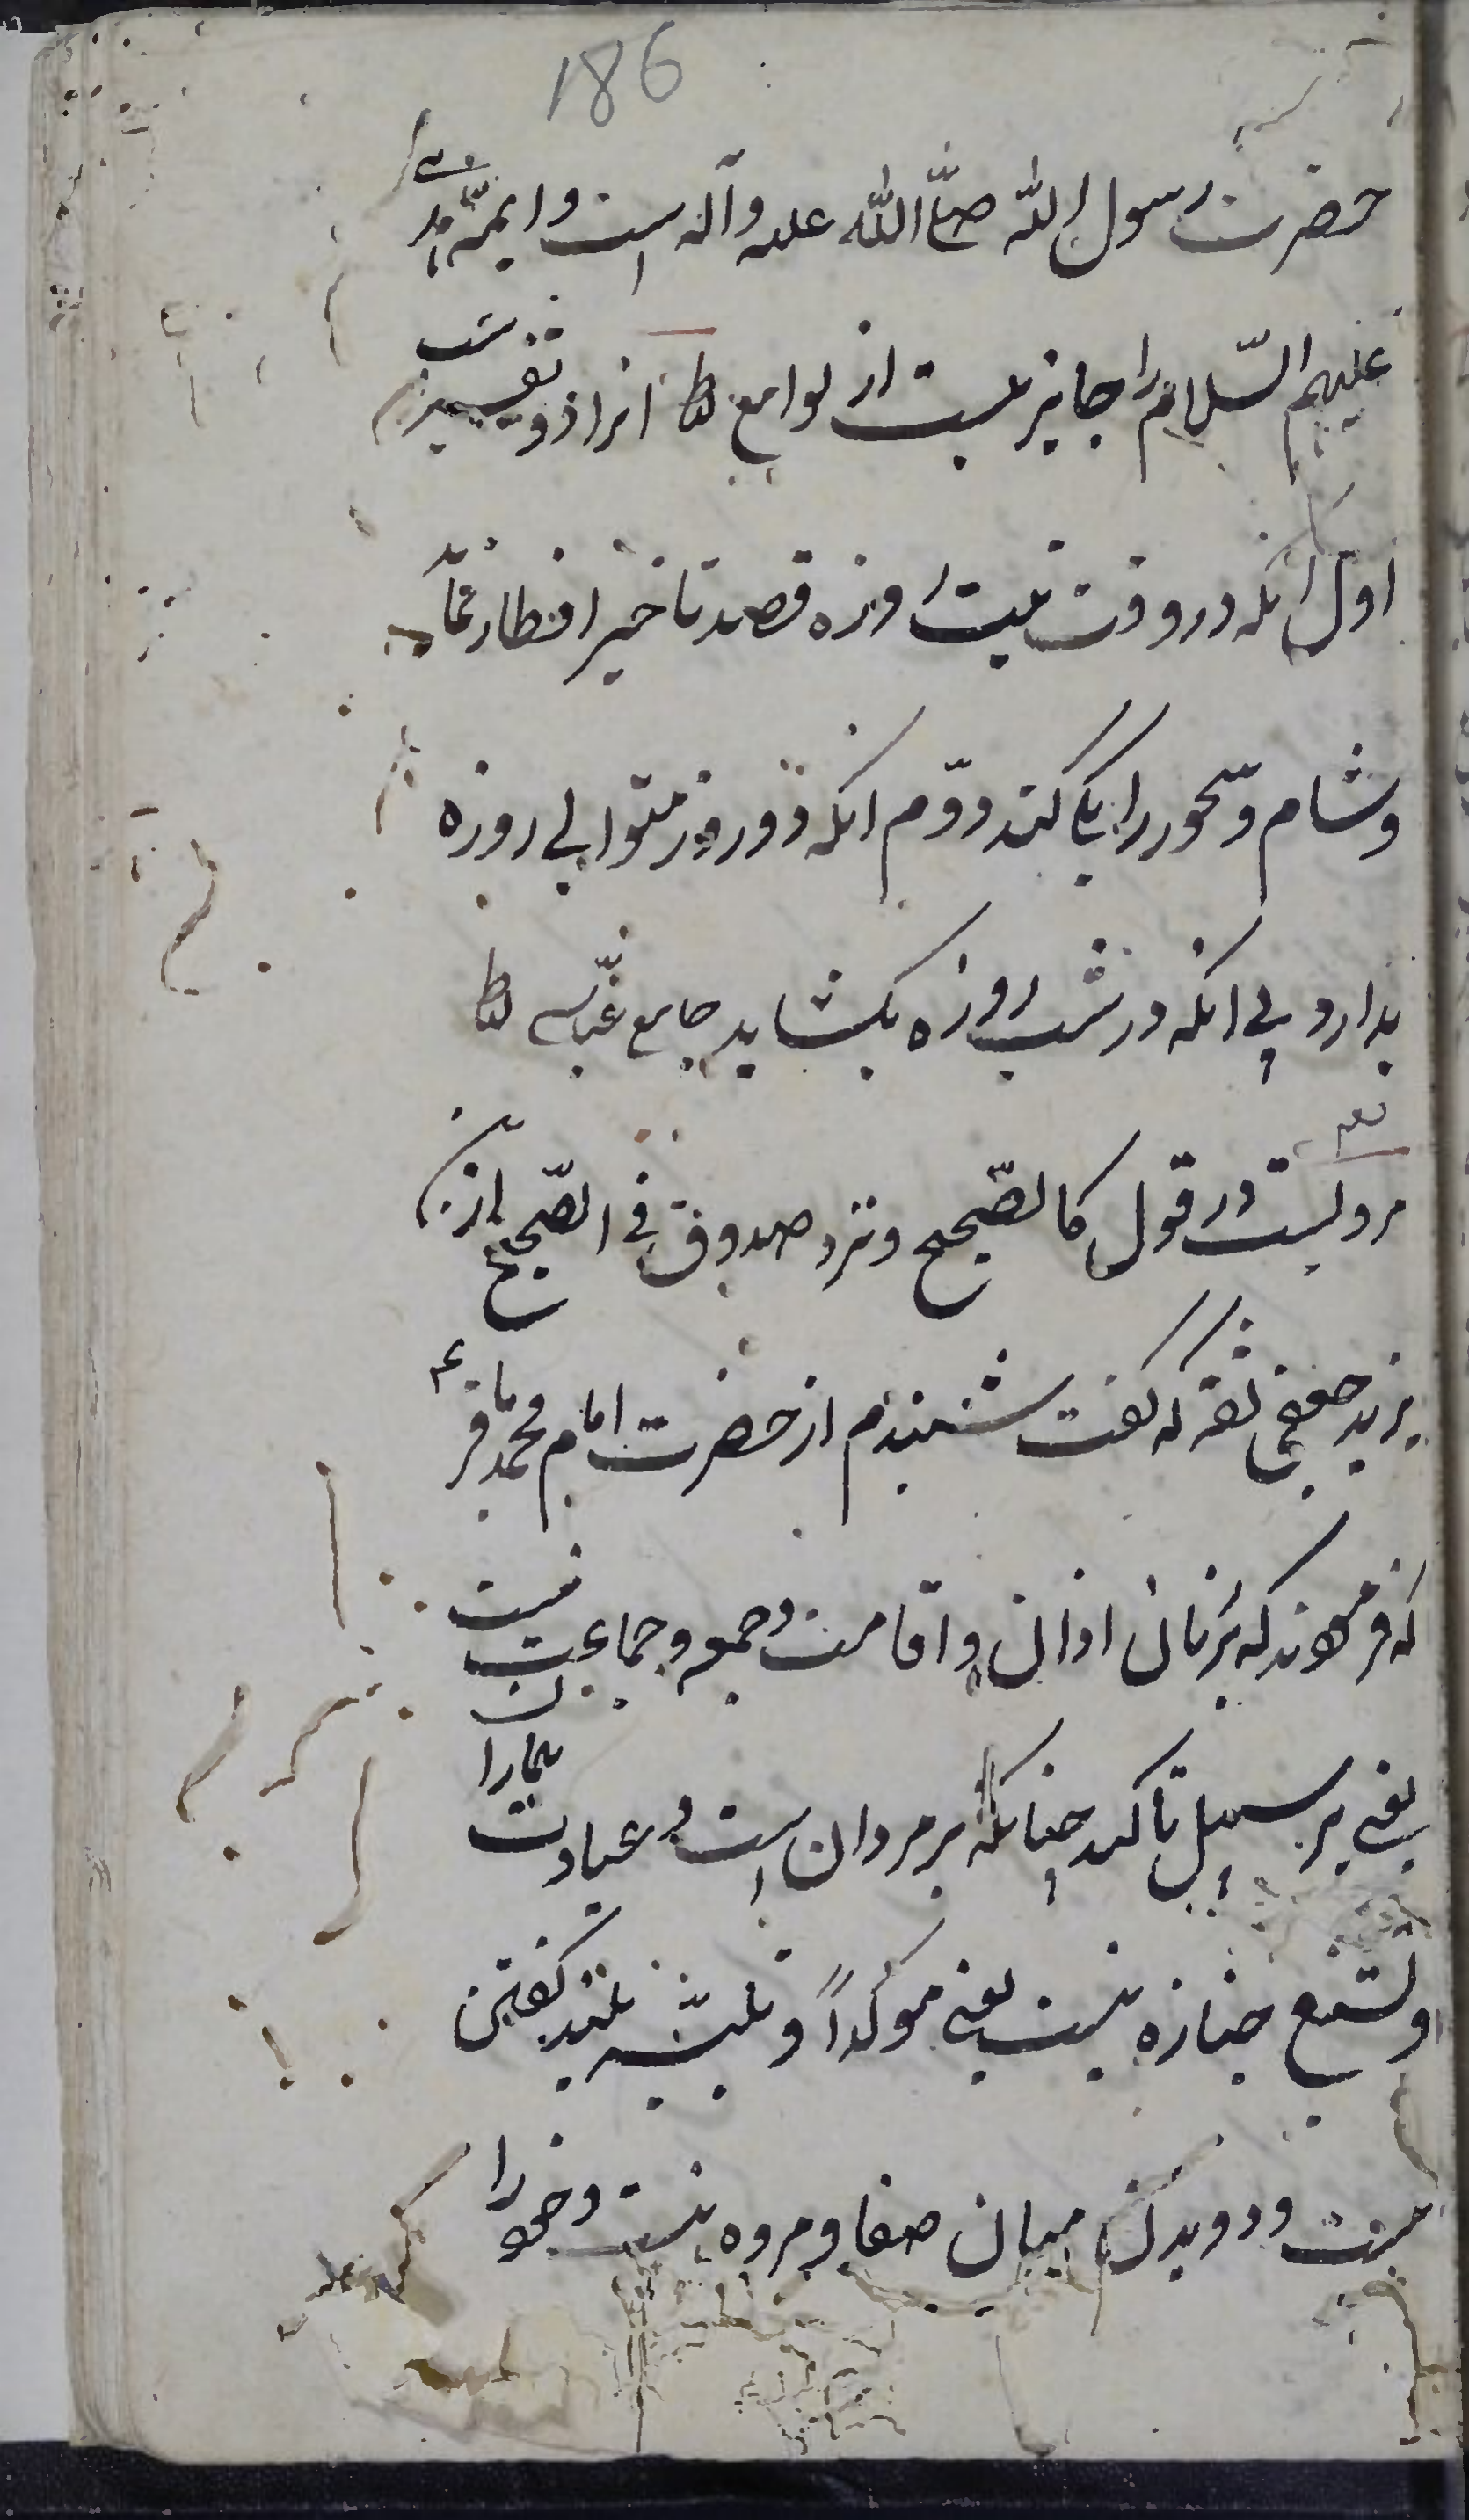 186
حضرت رسول الله صلّی الله علیه وآله است وایمّه
علیهم السّلام را جایز نیست از لوامع آنرا دو تفسیر
اول آنکه در وقت نیت روزه قصد تاخیر افطار نماید
وشام وسحور را یکی کند دوّم آنکه دو روز متوالی روزه
بدارد بی آنکه در شب روزه بکشاید جامع عبّاسی
مرویست در قول کالصّحیح ونزد صدوق فی الصّحیح از
یزید جعفی ثقه که گفت شنیدم از حضرت امام محمد باقر ع
که فرمودند که بر زنان اذان واقامت وجمعه وجماعت نیست
یعنی بر سبیل تاکید چنانکه بر مردان است وعیادت بیماران
وتشیع جنازه نیست یعنی موکداً وتلبیه بلند گفتن
نیست ودویدن میان صفا ومروه نیست وخود را